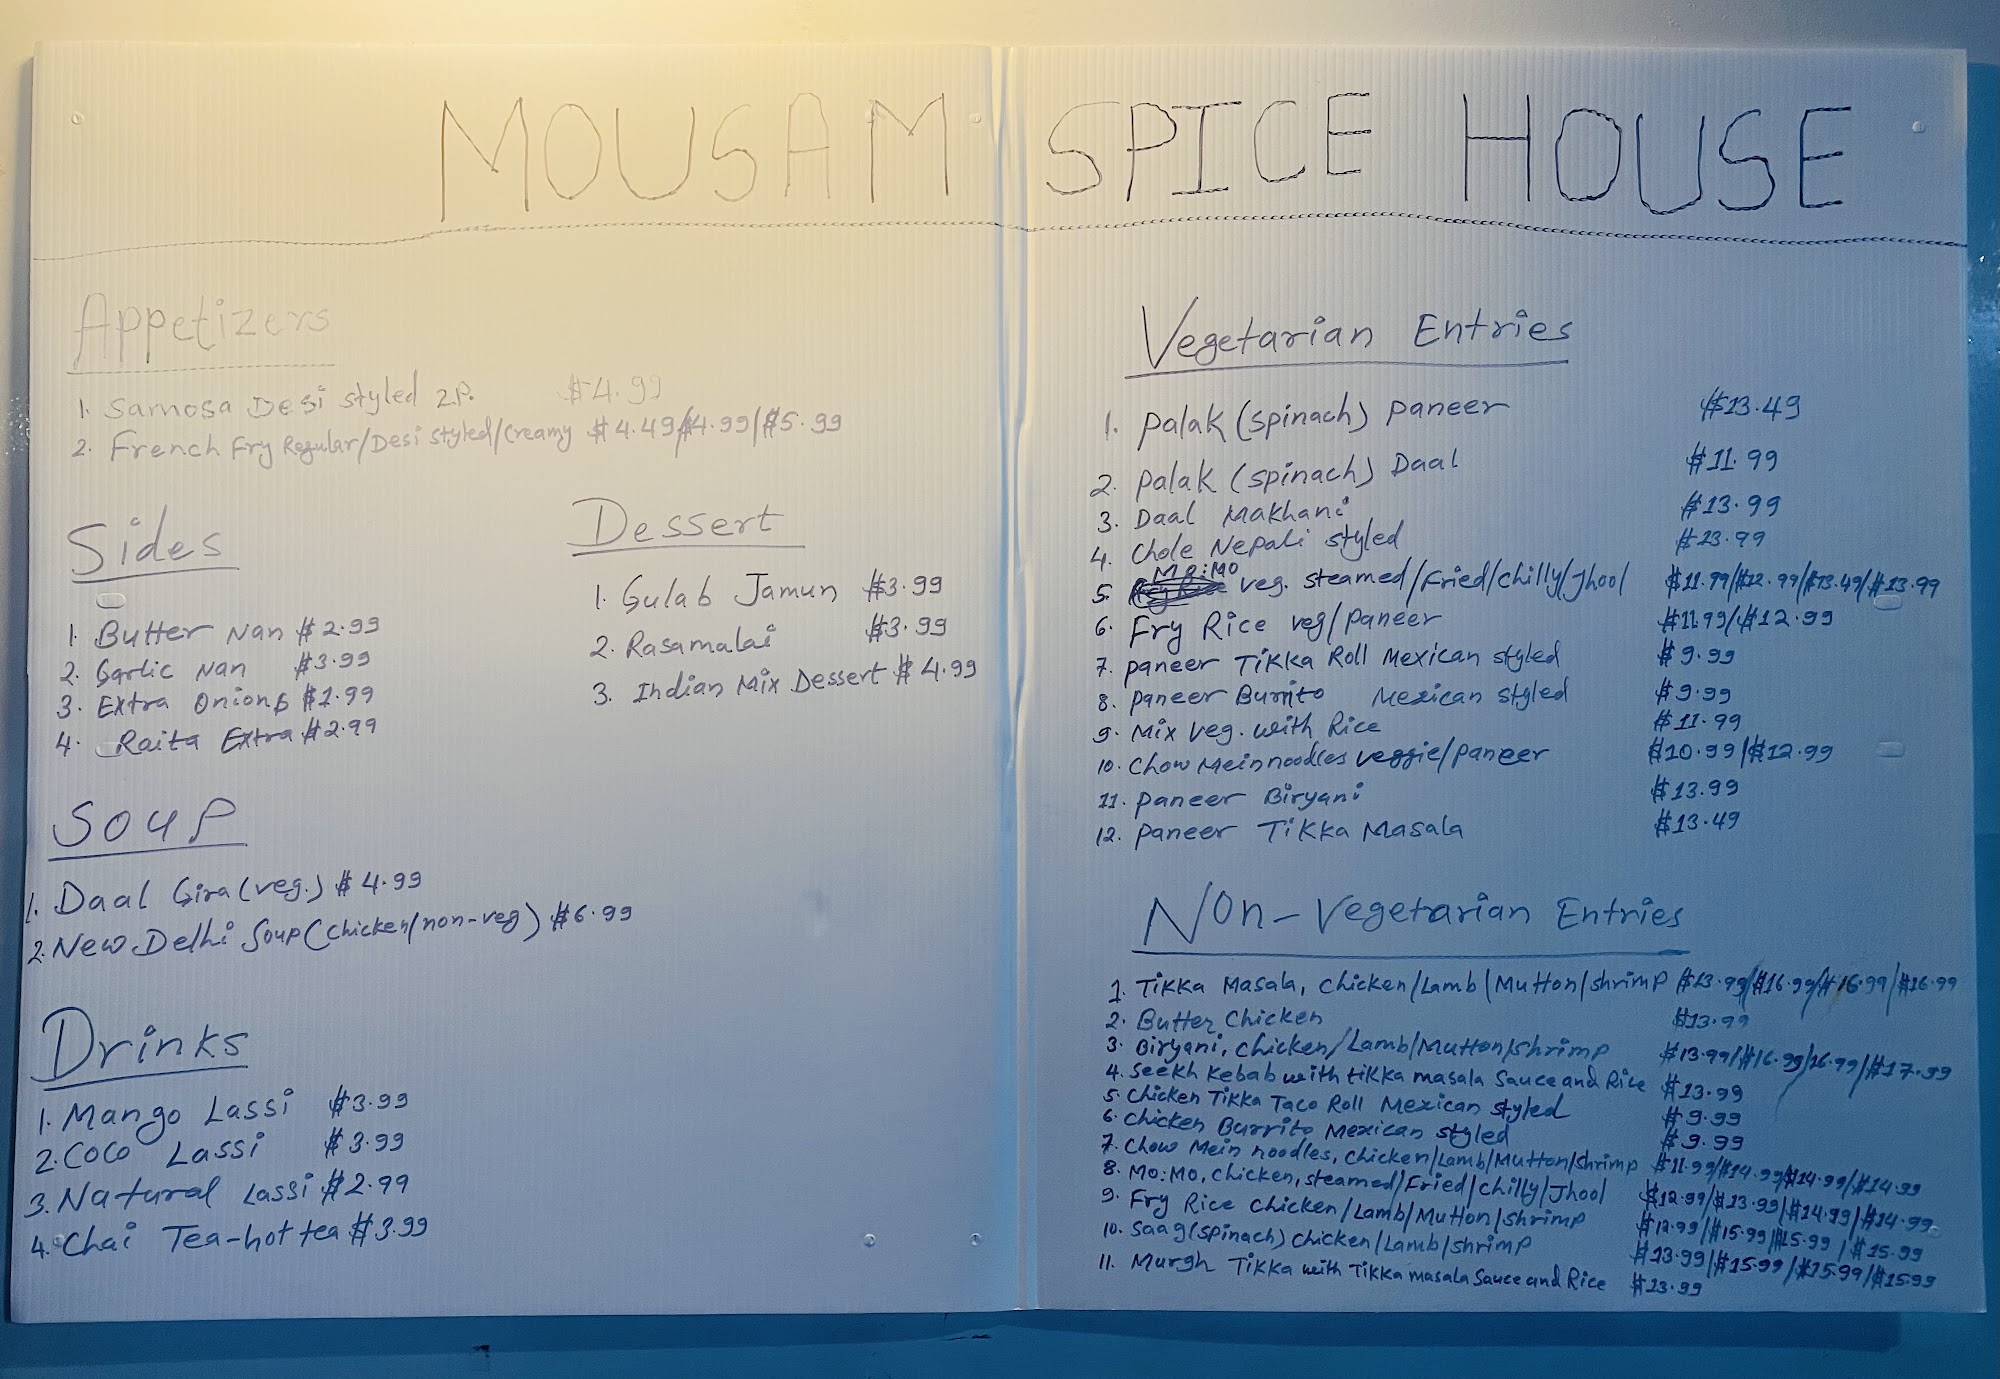 MOUSAM SPICE HOUSE
Appetizers
1. Samosa Desi styled 2P. $4.99
2. French Fry Regular/Desi styled/Creamy $4.49/$4.99/$5.99
Sides
1. Butter Nan $2.99
2. Garlic Nan $3.99
3. Extra Onions $1.99
4. Raita Extra $2.99
Dessert
1. Gulab Jamun $3.99
2. Rasamalai $3.99
3. Indian Mix Dessert $4.99
Soup
1. Daal Gira (veg.) $4.99
2. New Delhi Soup (chicken/non-veg) $6.99
Drinks
1. Mango Lassi $3.99
2. Coco Lassi $3.99
3. Natural Lassi $2.99
4. Chai Tea-hot tea $3.99
Vegetarian Entries
1. Palak (spinach) Paneer $13.49
2. Palak (spinach) Daal $11.99
3. Daal Makhani $13.99
4. Chole Nepali styled $13.99
5. Mo:Mo veg. steamed/Fried/chilly/Jhool $11.99/$12.99/$13.49/$13.99
6. Fry Rice veg/Paneer $11.99/$12.99
7. Paneer Tikka Roll Mexican styled $9.99
8. Paneer Burrito Mexican styled $9.99
9. Mix Veg. with Rice $11.99
10. Chow Mein noodles veggie/Paneer $10.99/$12.99
11. Paneer Biryani $13.99
12. Paneer Tikka Masala $13.49
Non-Vegetarian Entries
1. Tikka Masala, Chicken/Lamb/Mutton/shrimp $13.99/$16.99/$16.99/$16.99
2. Butter Chicken $13.99
3. Biryani, Chicken/Lamb/Mutton/shrimp $13.99/$16.99/16.99/$17.99
4. Seekh Kebab with tikka masala Sauce and Rice $13.99
5. Chicken Tikka Taco Roll Mexican styled $9.99
6. Chicken Burrito Mexican styled $9.99
7. Chow Mein noodles, Chicken/Lamb/Mutton/shrimp $11.99/$14.99/$14.99/$14.99
8. Mo:Mo, Chicken, steamed/Fried/chilly/Jhool $12.99/$13.99/$14.99/$14.99
9. Fry Rice Chicken/Lamb/Mutton/shrimp $12.99/$15.99/$15.99/$15.99
10. Saag (spinach) Chicken/Lamb/shrimp $13.99/$15.99/$15.99/$15.99
11. Murgh Tikka with Tikka masala Sauce and Rice $13.99